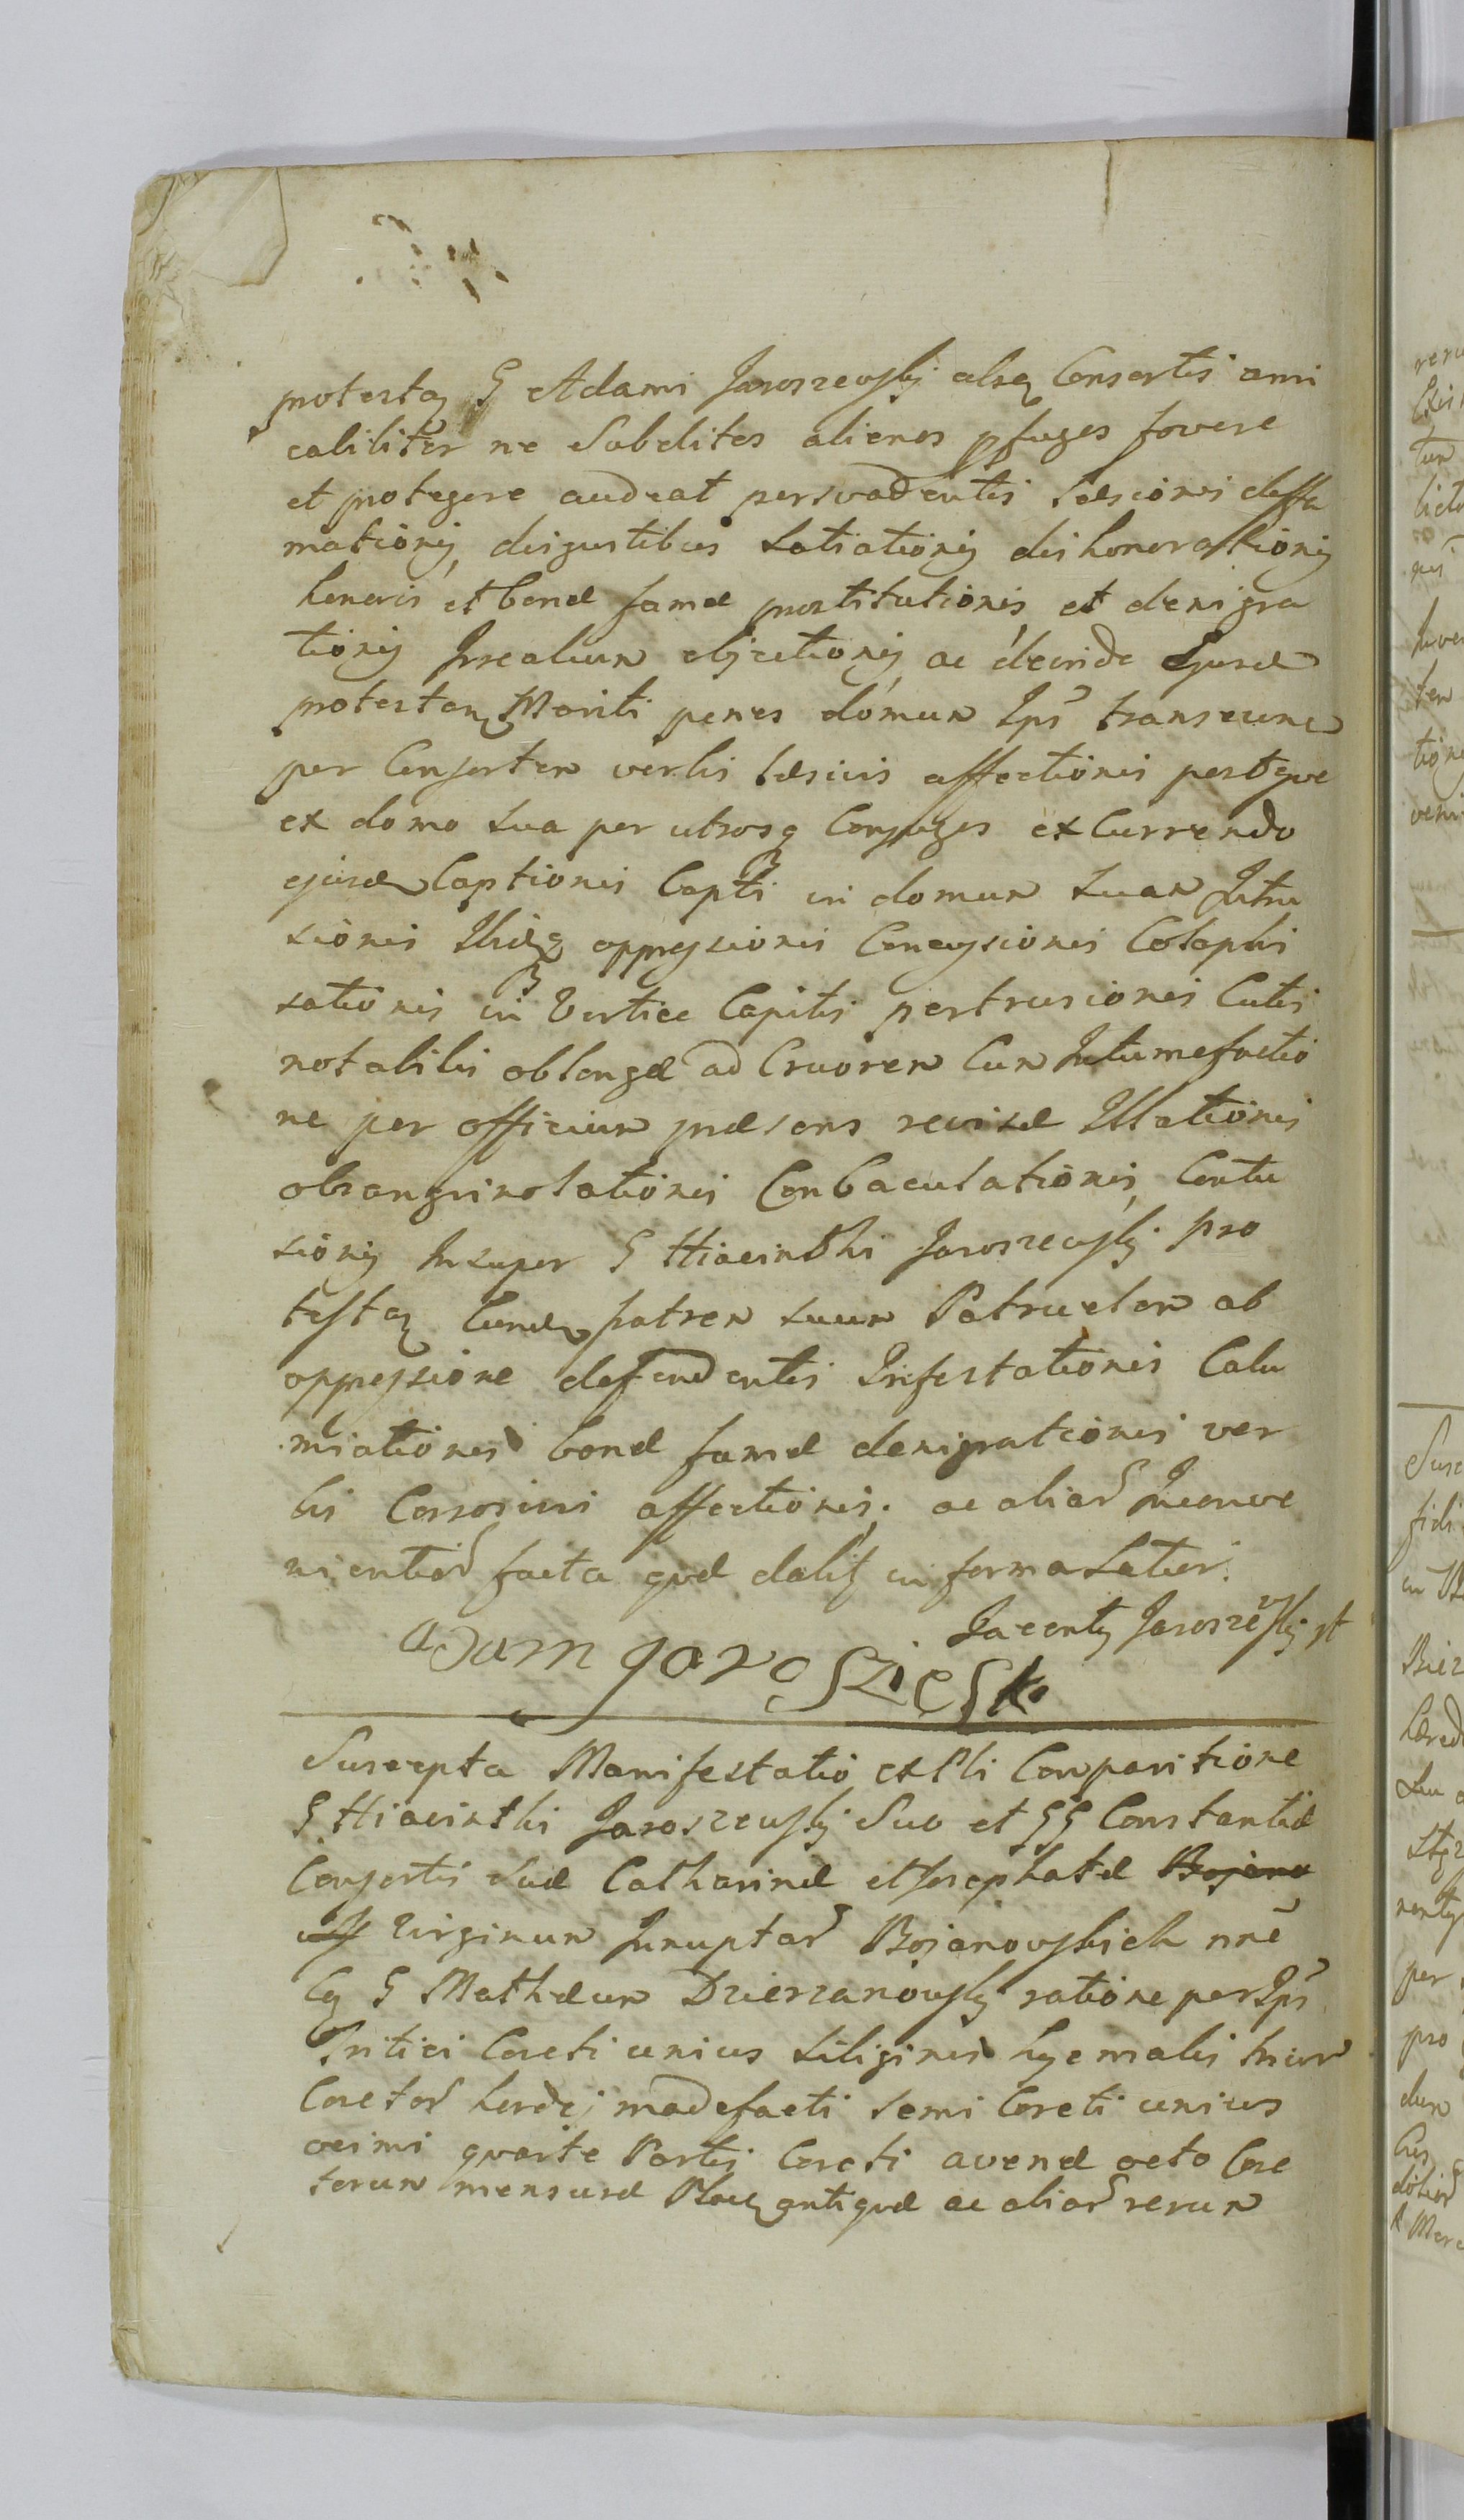 protestā G Adami Jaroszewskj absq Consortis ami
cabiliter ne Subditos alienos pfugos fovere
et protegere audeat persvadentis læsionis deffa
mationis, disgustibus Satiationis dishonorationis
honoris et bonæ famæ prostitutionis, et denigra
tionis objectionis, ac deinde Ejusd
protestan Mariti penes domum Ips transeun
per Consortem verbis læsivis affectionis postqve
ex domo sua per utrosq Conjuges excurrendo
ejusd Captionis Capti in domum suam Intru
sionis Ibidq oppressionis Concussionis Colaphi
sationis in Vertice Capitis pertrusionis Cutis
notabilis oblongæ ad Cruorem Cum Intumefactio
ne per officium præsens revisæ Illationis
obsangvinolationis Conbaculationis, Contu
sionis Insuper G Hiacinthi Jaroszewskj pro
testā Eund fratrem suum Patruelem ab
oppressione defendentis Infestationis Calu
mniationis bonæ famæ denigrationis ver
bis Corrosivis affectionis. ac aliar Inconve
nientiar facta qvæ dabit in forma Latior.
Jacenty Jaroszewskj
adam Jaroszieski
Suscepta Manifestatio ex Pli Comparitione
G Hiacinthi Jaroszewskj Suo et GG Constantiæ
Consortis suæ Catharinæ et Josephatæ Bojano
Virginum Innuptar Bojanowskich nne
Cą G Mathæum Dzierzanowskj ratione per Ips
Tritici Coreti unius siliginis hyemalis trium
Coretor hordej madefacti semi Coreti unius
cum quarte Partis Coreti avenæ octo Core
torum mensuræ Ploc antiquæ ac aliar rerum